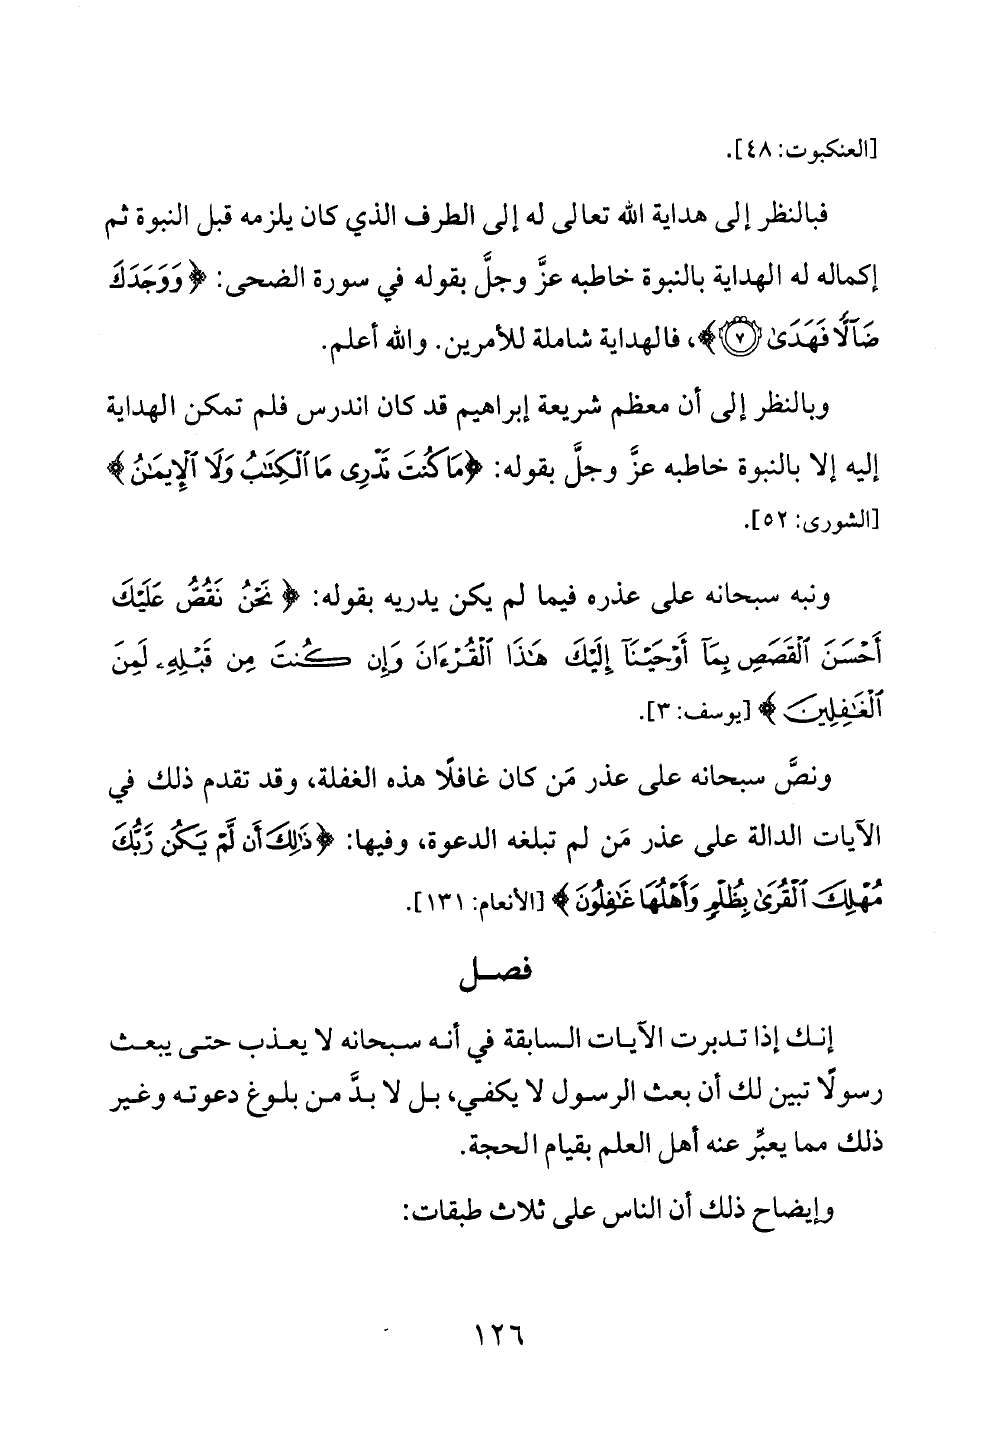 [العنكبوت: ٤٨].
فبالنظر إلى هداية الله تعالى له إلى الطرف الذي كان يلزمه قبل النبوة ثم
إكماله له الهداية بالنبوة خاطبه عزَّ وجلَّ بقوله في سورة الضحى: ﴿وَوَجَدَكَ
ضَآلًّا فَهَدَىٰ ۝٧﴾، فالهداية شاملة للأمرين. والله أعلم.
وبالنظر إلى أن معظم شريعة إبراهيم قد كان اندرس فلم تمكن الهداية
إليه إلا بالنبوة خاطبه عزَّ وجلَّ بقوله: ﴿مَا كُنتَ تَدْرِى مَا ٱلْكِتَٰبُ وَلَا ٱلْإِيمَٰنُ﴾
[الشورى: ٥٢].
ونبه سبحانه على عذره فيما لم يكن يدريه بقوله: ﴿نَحْنُ نَقُصُّ عَلَيْكَ
أَحْسَنَ ٱلْقَصَصِ بِمَآ أَوْحَيْنَآ إِلَيْكَ هَٰذَا ٱلْقُرْءَانَ وَإِن كُنتَ مِن قَبْلِهِۦ لَمِنَ
ٱلْغَٰفِلِينَ﴾ [يوسف: ٣].
ونصَّ سبحانه على عذر مَن كان غافلًا هذه الغفلة، وقد تقدم ذلك في
الآيات الدالة على عذر مَن لم تبلغه الدعوة، وفيها: ﴿ذَٰلِكَ أَن لَّمْ يَكُن رَّبُّكَ
مُهْلِكَ ٱلْقُرَىٰ بِظُلْمٍ وَأَهْلُهَا غَٰفِلُونَ﴾ [الأنعام: ١٣١].
فصل
إنك إذا تدبرت الآيات السابقة في أنه سبحانه لا يعذب حتى يبعث
رسولًا تبين لك أن بعث الرسول لا يكفي، بل لا بدَّ من بلوغ دعوته وغير
ذلك مما يعبِّر عنه أهل العلم بقيام الحجة.
وإيضاح ذلك أن الناس على ثلاث طبقات:
١٢٦